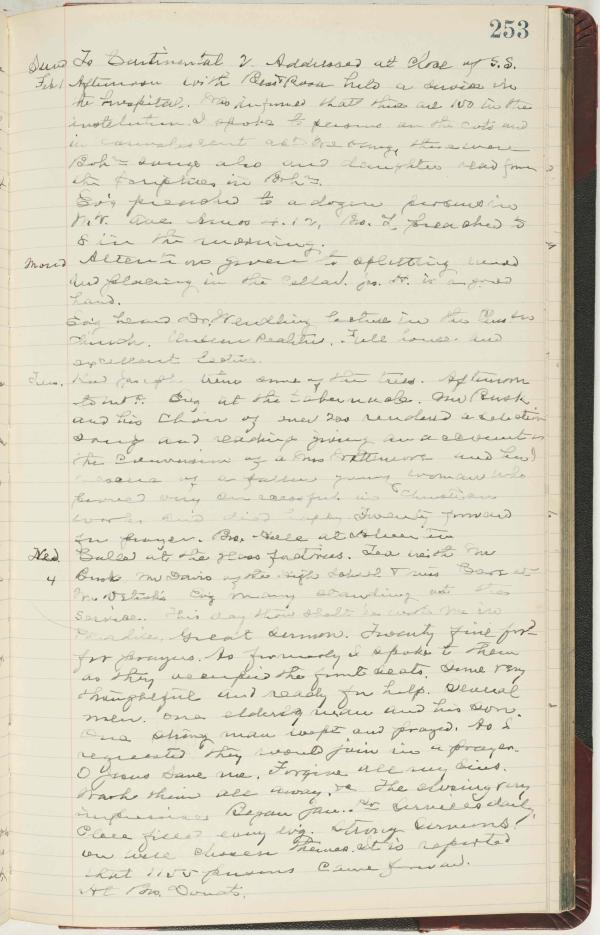 253
Sund To Continental 2. Addressed at close of S.S.
Feb 1 Afternoon with Bros Rosa held a service in
the hospital. Was informed that there are 150 in the
institution I spoke to persons on the cots and
in convalescent
Bohn songs also and daughter read from
the Scriptures in Bohn.
Evg preached to a dozen persons in
N.W. Ave Amos 4.12, Bro. L preached to
8 in the morning.
Mond Attention given to splitting wood
and placing in the cellar. Jos. H. is a good
hand.
Evg heard Dr. Wendling lecture in the
Church. Unseen Realities. Full house and
excellent lecture.
Tues. Joseph some of the trees. Afternoon
to Evg at the tabernacle. Mr Bush
and his Choir of over 200 rendered a selection
song and reading giving an account of
the Conversion of a Mrs and her
rescue of a fallen young woman who
proved very successful in Christian
work, and died happy. Twenty forward
for prayer. Bro.
Wed. Called at the glass factories. Tea with Mr
4 Bush Mr Davis of the High School & Miss at
Mr Evg many standing at the
service. This day thou shalt be with Me in
Paradise. Great sermon. Twenty five for
for prayers. As formerly I spoke to them
as they occupied the front seats. Some very
thoughtful and ready for help. Several
men. One elderly man and his son.
One strong man wept and prayed. As I
requested they would join in a prayer.
O Jesus save me. Forgive all my sins.
Wash them all away, &c The closing very
impressive Began Jan. Services daily,
Place filled every evg. Strong sermons
on well chosen Themes. It is reported
that 1155 persons came forward.
At Bro. Donats.